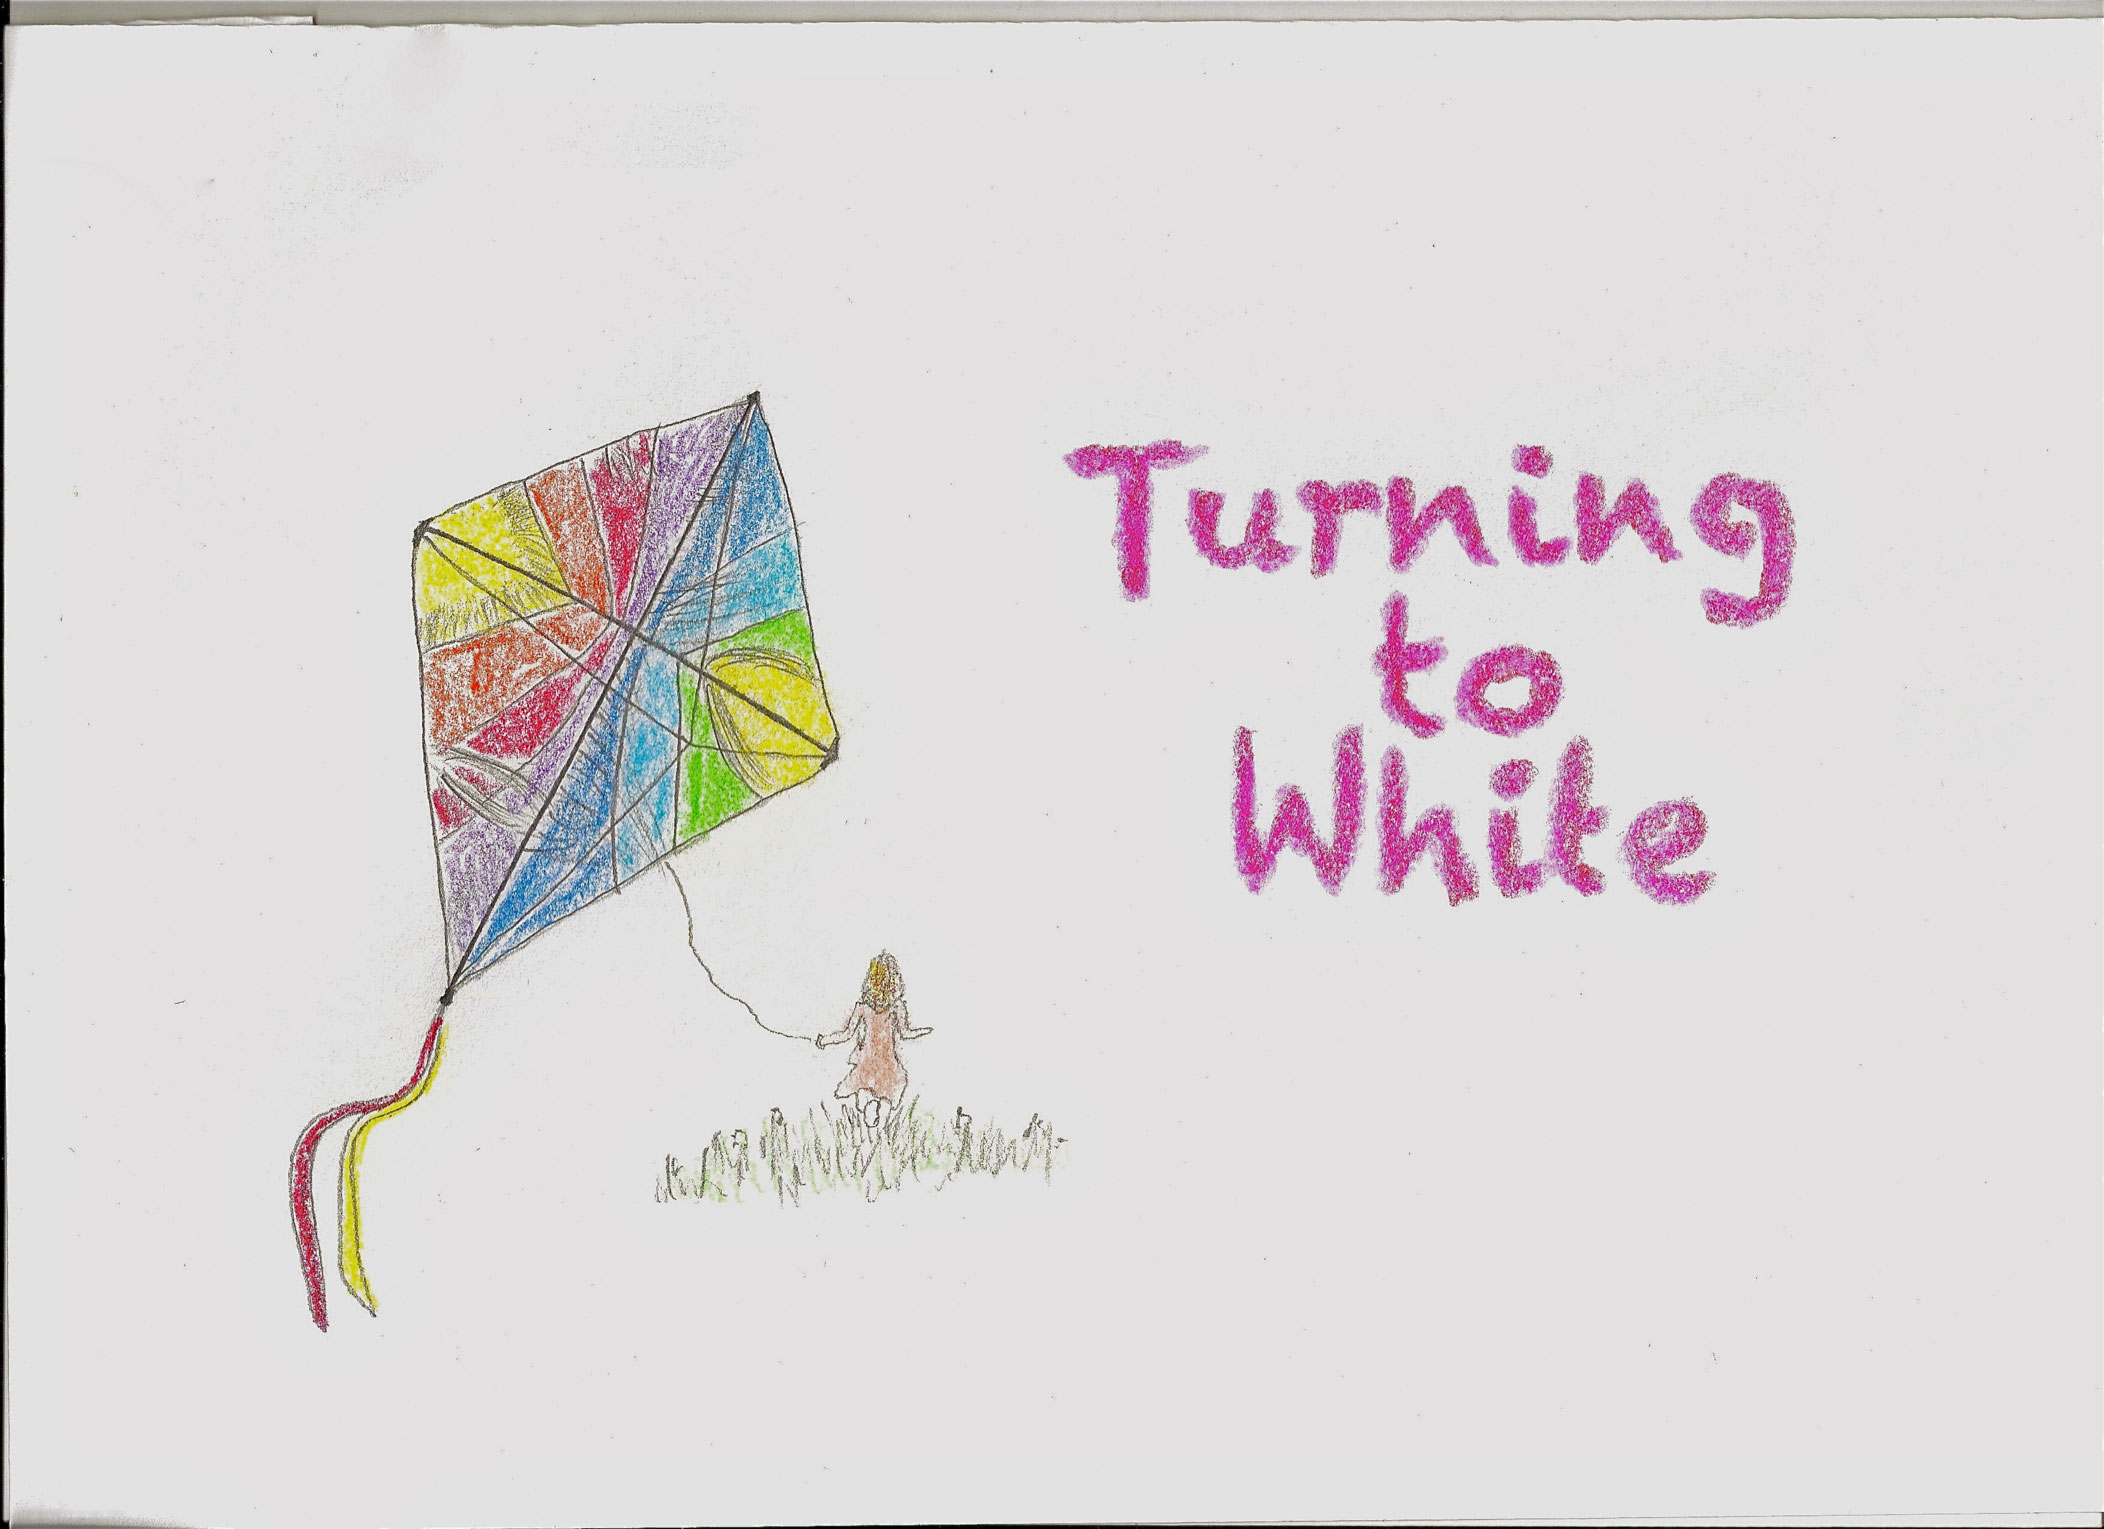 Turning
to
White